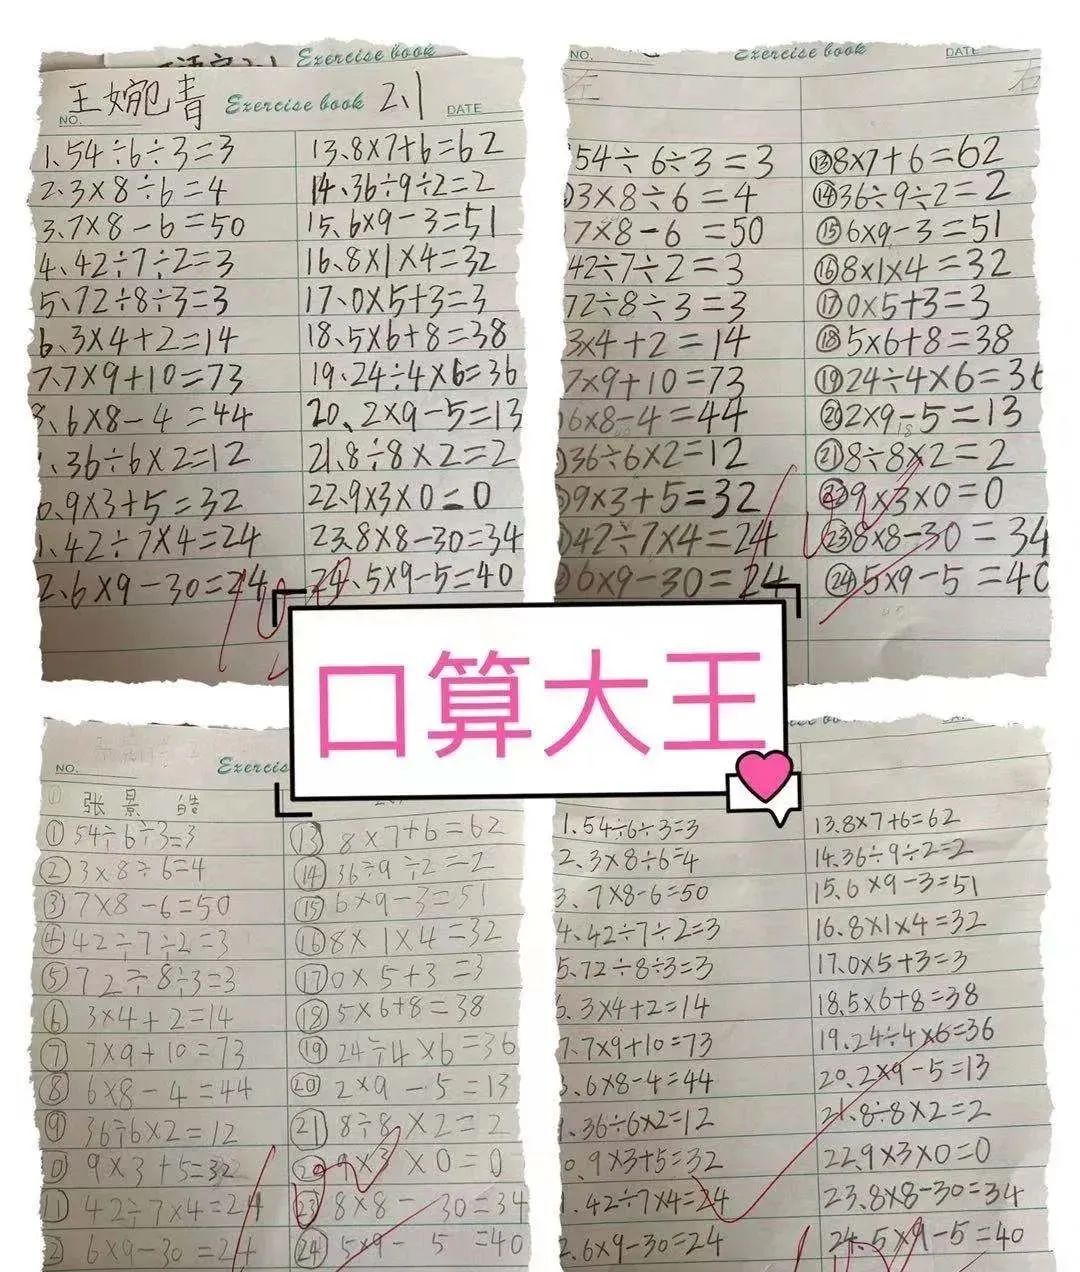 Exercise book
王婉毓青 Exercise book 2、1
NO. DATE
1、54÷6÷3=3
2、3×8÷6=4
3、7×8-6=50
4、42÷7÷2=3
5、72÷8÷3=3
6、3×4+2=14
7、7×9+10=73
8、6×8-4=44
、36÷6×2=12
0、9×3+5=32
1、42÷7×4=24
2、6×9-30=24
13、8×7+6=62
14、36÷9÷2=2
15、6×9-3=51
16、8×1×4=32
17、0×5+3=3
18、5×6+8=38
19、24÷4×6=36
20、2×9-5=13
21、8÷8×2=2
22、9×3×0=0
23、8×8-30=34
24、5×9-5=40
100
NO. Exercise book DATE
54÷6÷3=3
3×8÷6=4
7×8-6=50
42÷7÷2=3
72÷8÷3=3
3×4+2=14
7×9+10=73
6×8-4=44
36÷6×2=12
9×3+5=32
42÷7×4=24
6×9-30=24
⑬8×7+6=62
⑭36÷9÷2=2
⑮6×9-3=51
⑯8×1×4=32
⑰0×5+3=3
⑱5×6+8=38
⑲24÷4×6=36
⑳2×9-5=13
㉑8÷8×2=2
㉒9×3×0=0
㉓8×8-30=34
㉔5×9-5=40
口算大王
NO. Exercis
张景皓
①54÷6÷3=3
②3×8÷6=4
③7×8-6=50
④42÷7÷2=3
⑤72÷8÷3=3
⑥3×4+2=14
⑦7×9+10=73
⑧6×8-4=44
⑨36÷6×2=12
0 9×3+5=32
⑪42÷7×4=24
2 6×9-30=24
⑬8×7+6=62
⑭36÷9÷2=2
⑮6×9-3=51
⑯8×1×4=32
⑰0×5+3=3
⑱5×6+8=38
⑲24÷4×6=36
⑳2×9-5=13
㉑8÷8×2=2
㉒9×3×0=0
㉓8×8-30=34
㉔5×9-5=40
1.54÷6÷3=3
2、3×8÷6=4
3、7×8-6=50
4、42÷7÷2=3
5、72÷8÷3=3
6、3×4+2=14
7.7×9+10=73
8.6×8-4=44
1.36÷6×2=12
0、9×3+5=32
1.42÷7×4=24
2.6×9-30=24
13.8×7+6=62
14.36÷9÷2=2
15.6×9-3=51
16.8×1×4=32
17.0×5+3=3
18.5×6+8=38
19.24÷4×6=36
20.2×9-5=13
21.8÷8×2=2
22.9×3×0=0
23.8×8-30=34
24.5×9-5=40